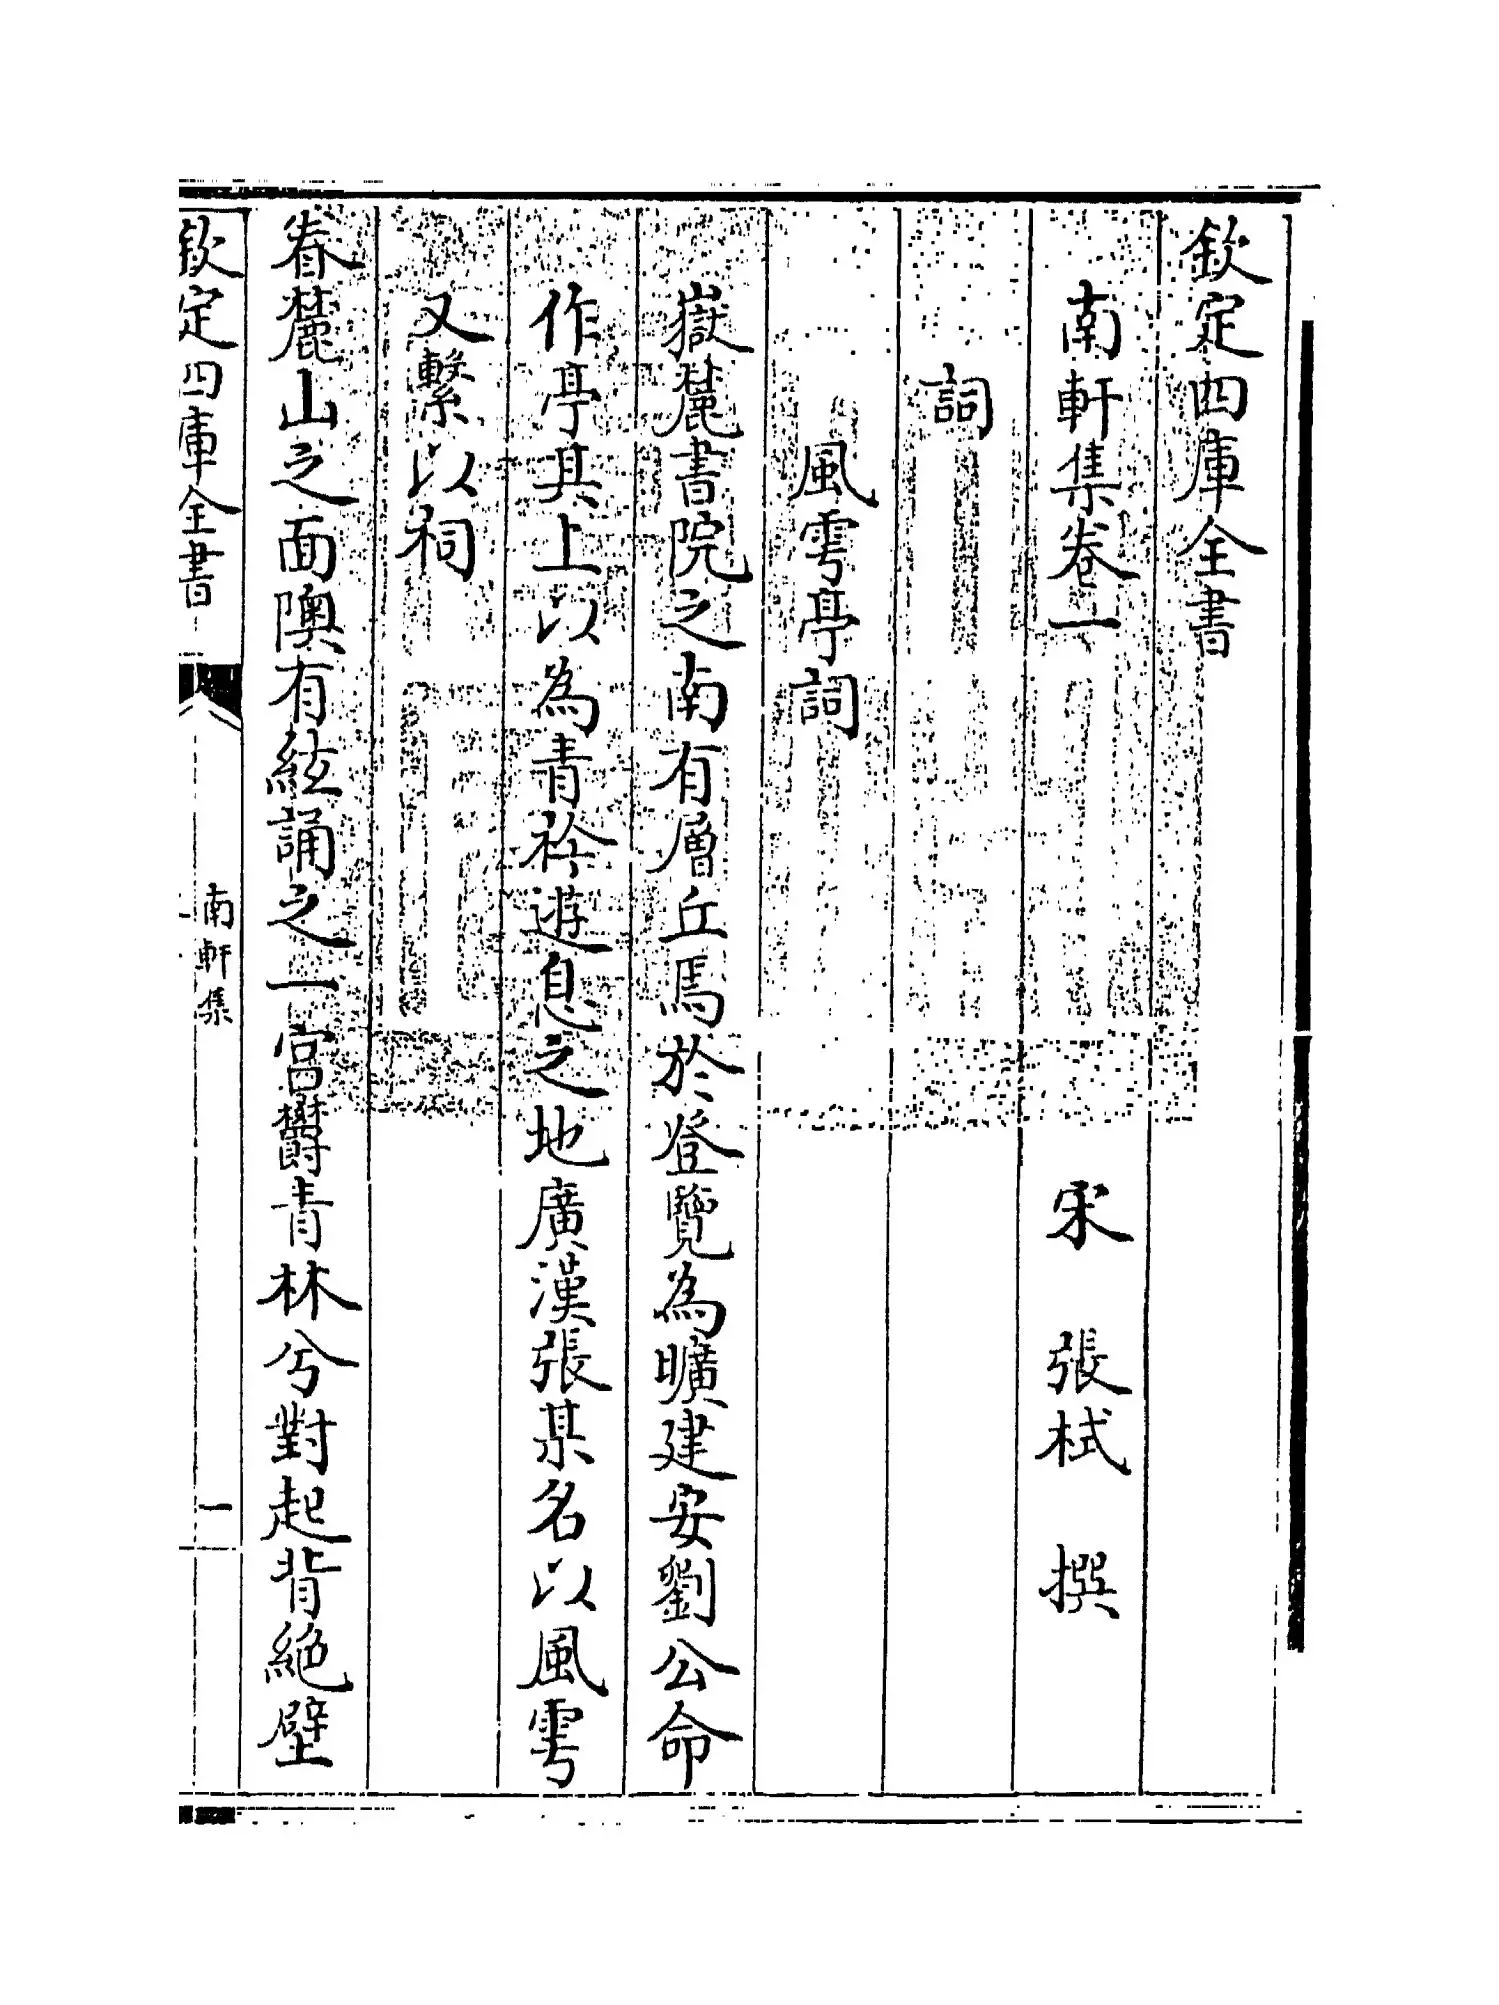 欽定四庫全書
南軒集卷一 宋 張栻 撰
詞
風雩亭詞
嶽麓書院之南有層丘焉於登覽為曠建安劉公命
作亭其上以為青衿遊息之地廣漢張某名以風雩
又繫以祠
眷麓山之面隩有絃誦之一宮鬱青林兮對起背絕壁
欽定四庫全書
南軒集
一